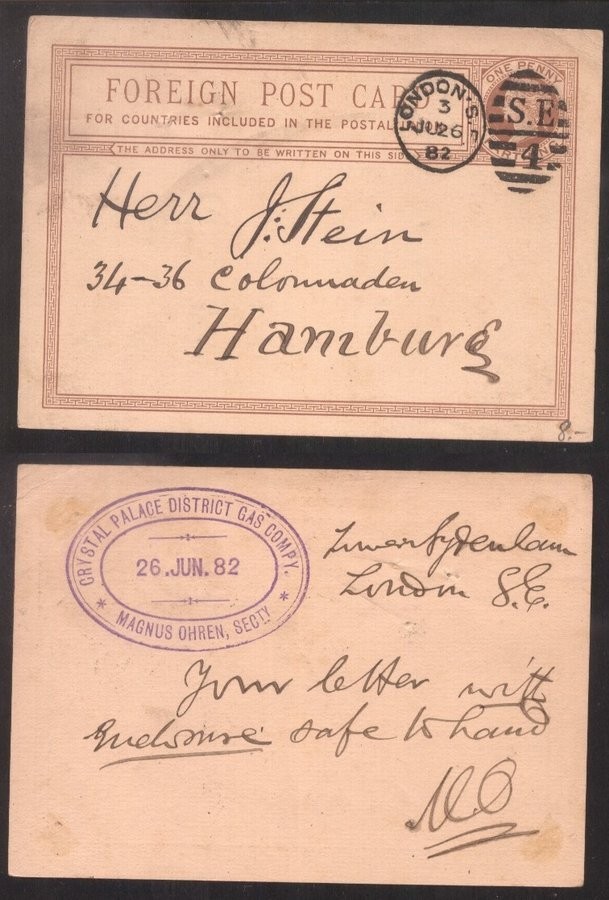 FOREIGN POST CARD
FOR COUNTRIES INCLUDED IN THE POSTAL
THE ADDRESS ONLY TO BE WRITTEN ON THIS SIDE
ONE PENNY
LONDON·S.E
3
JU26
82
S.E.
4
Herr J. Stein
34-36 Colonnaden
Hamburg
8.-
CRYSTAL PALACE DISTRICT GAS COMPY.
26.JUN.82
* MAGNUS OHREN, SECTY *
Lower Sydenham
London S.E.
Your letter with
Enclosure safe to hand
MO